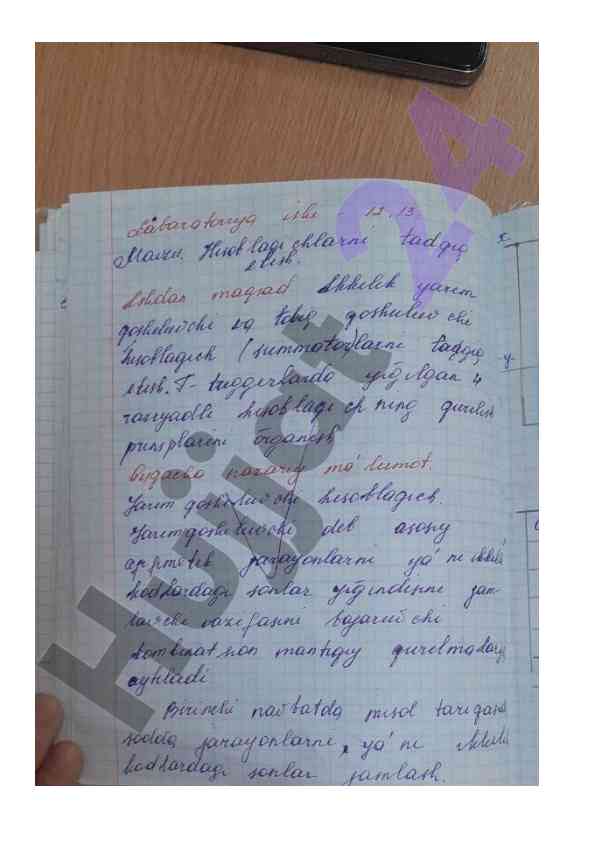 Labaratorya ishi - 12, 13
Mavzu. Hisoblagichlarni tadqiq
etish.
Ishdan maqsad Ikkilik yarim
qoshiluvchi va toliq qoshiluvchi
hisoblagich (summator)larni tadqiq
etish. T- triggerlarda yiğilgan 4
razryadli hisoblagichning qurilish
prinsplarini örganish
Qisqacha nazariy ma'lumot.
Yarim qoshiluvchi hisoblagich.
Yarimqoshiluvchi deb asosiy
jarayonlarni ya'ni ikkilik
kodlardagi sonlar yiğindisini jam
lovchi vazifasini bajaruvchi
kombinatsion mantiqiy qurilmalarga
aytiladi
Birinchi navbatda misol tariqasida
sodda jarayonlarni, ya'ni ikkilik
kodlardagi sonlar jamlash.
x
y
Hujjat 24